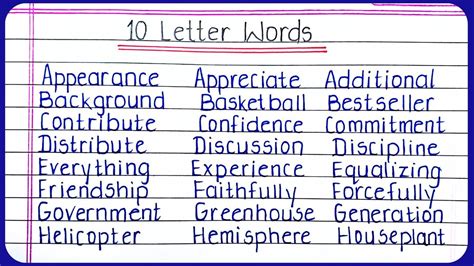 10 Letter Words
Appearance Appreciate Additional
Background Basketball Bestseller
Contribute Confidence Commitment
Distribute Discussion Discipline
Everything Experience Equalizing
Friendship Faithfully Forcefully
Government Greenhouse Generation
Helicopter Hemisphere Houseplant